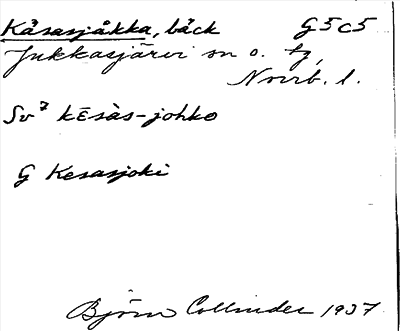 Kåsasjåkka, bäck G5c5
Jukkasjärvi sn o. tg,
Norrb. l.
Sv⁷ kēsàs-johko
G Kesasjoki
Björn Collinder 1937